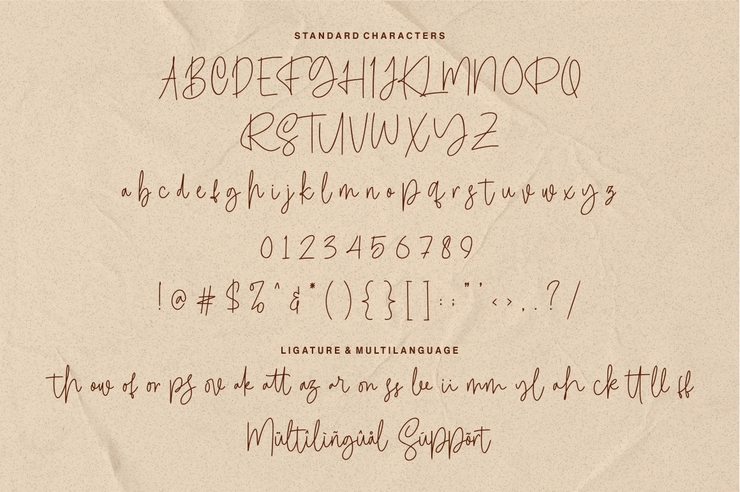 STANDARD CHARACTERS
ABCDEFGHIJKLMNOPQ
RSTUVWXYZ
abcdefghijklmnopqrstuvwxyz
0123456789
!@#$%^&*(){}[]:;"'<>,.?/
LIGATURE & MULTILANGUAGE
th ow of or ps ov ak att az ar on ss be ii mm yl ah ck tt ll ff
Mültiliñgûål Süppõrt